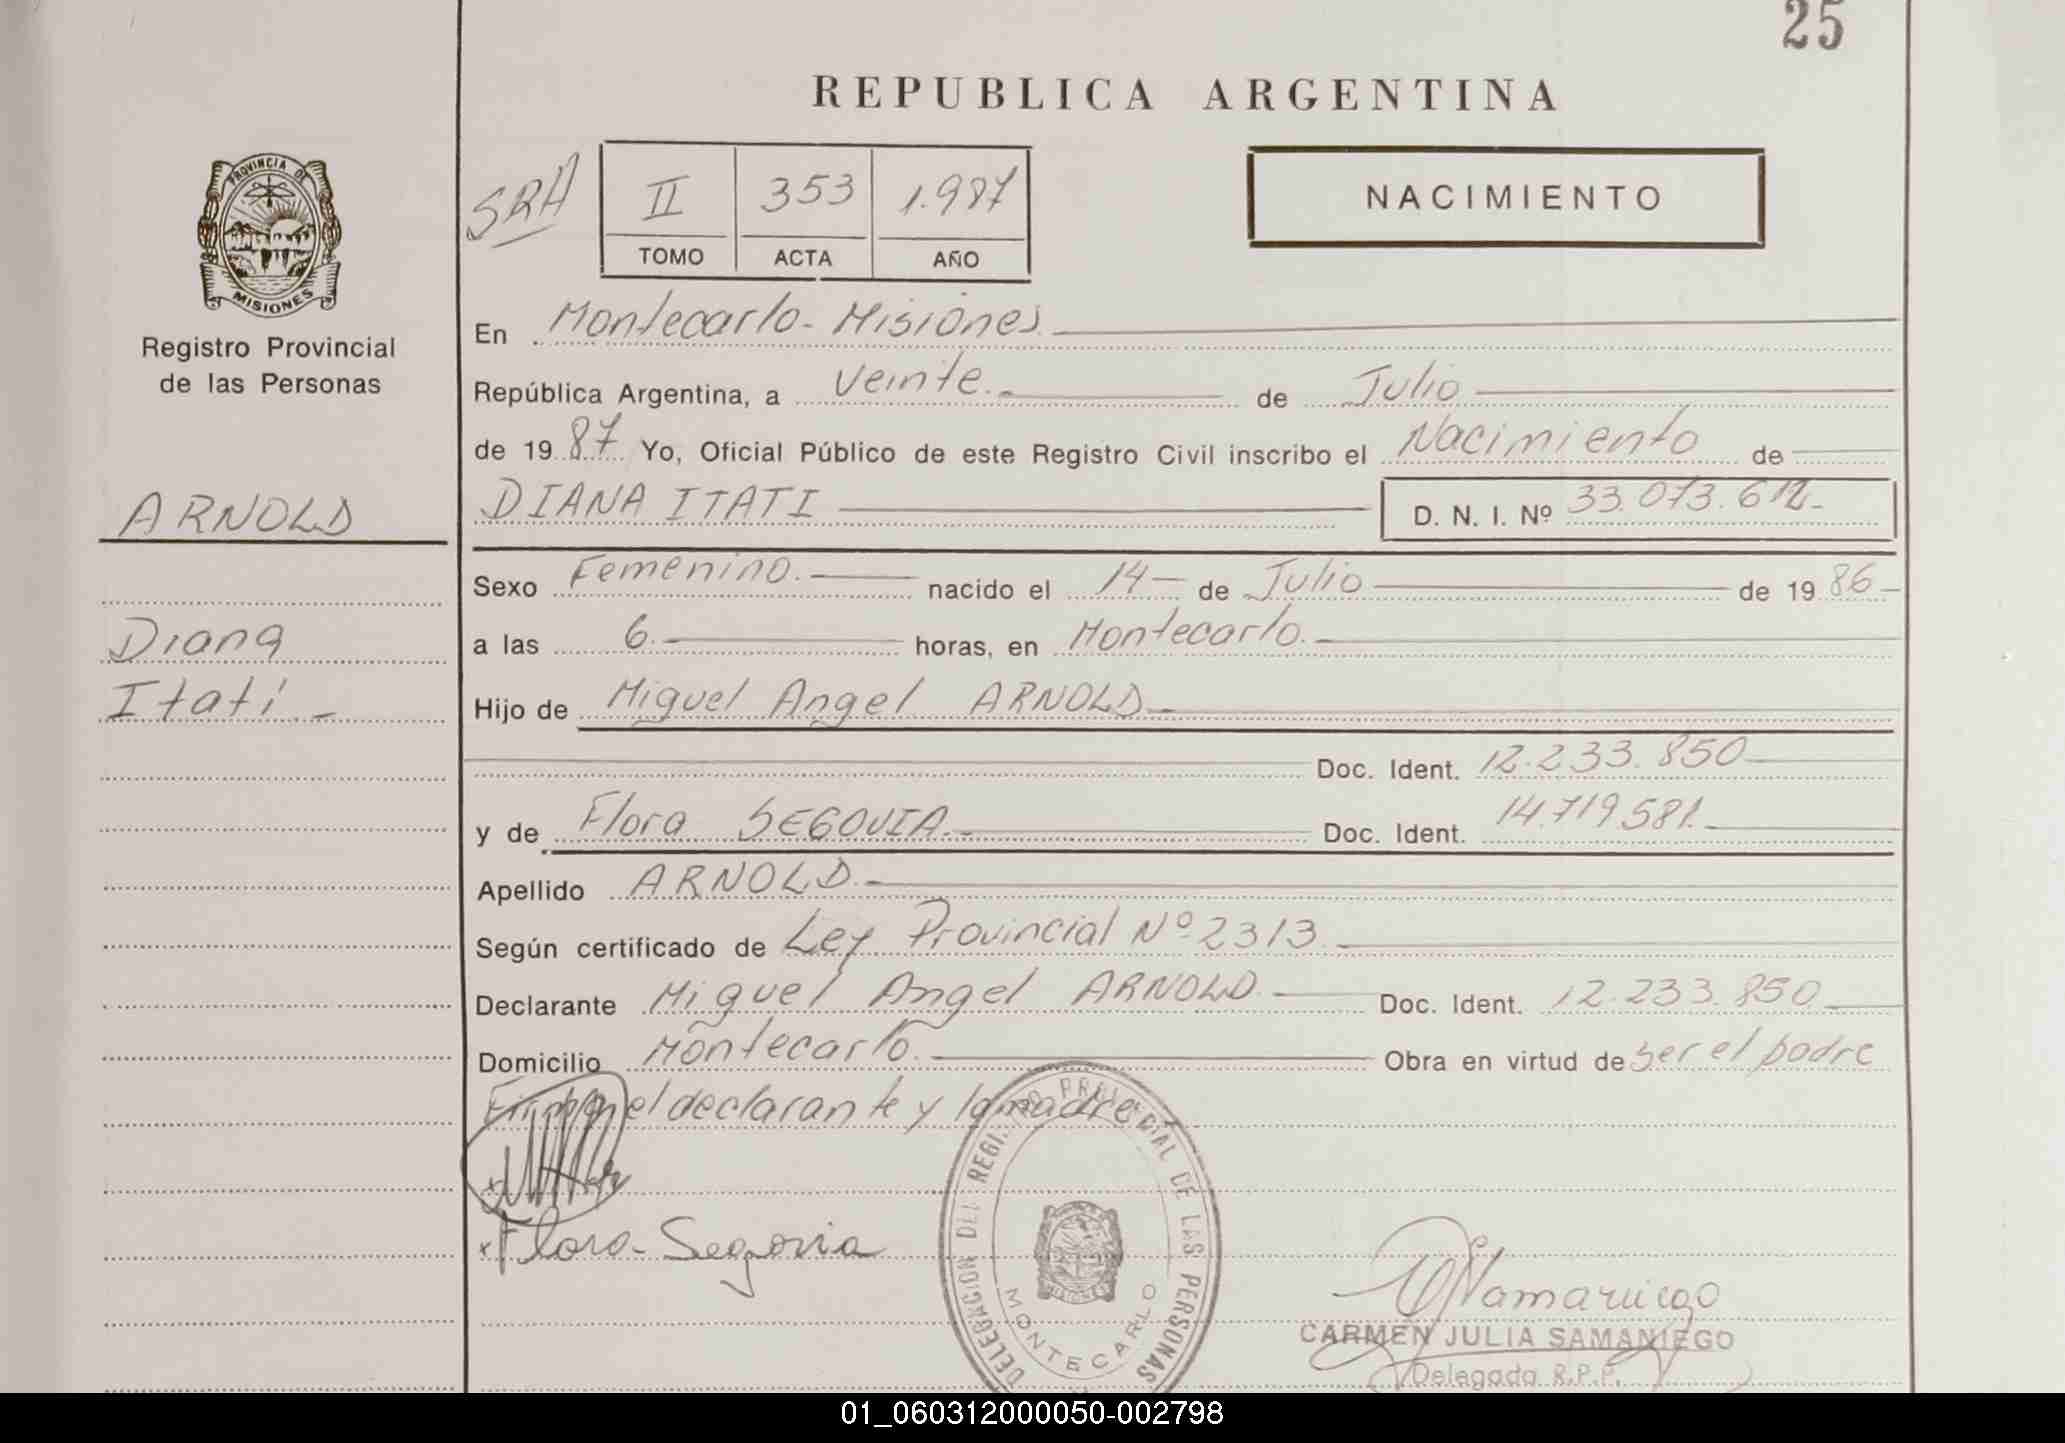 25
REPUBLICA ARGENTINA
PROVINCIA DE
MISIONES
Registro Provincial
de las Personas
SRA
II 353 1.987
TOMO ACTA AÑO
NACIMIENTO
En Montecarlo - Misiones.
República Argentina, a Veinte. de Julio
de 19 87 Yo, Oficial Público de este Registro Civil inscribo el Nacimiento de
ARNOLD
DIANA ITATI D. N. I. Nº 33.073.612-
Sexo Femenino. nacido el 14 de Julio de 19 86
Diana
a las 6. horas, en Montecarlo.
Itatí.-
Hijo de Miguel Angel ARNOLD
Doc. Ident. 12.233.850
y de Flora SEGOVIA. Doc. Ident. 14.719.581.
Apellido ARNOLD.
Según certificado de Ley Provincial Nº 2313.
Declarante Miguel Angel ARNOLD. Doc. Ident. 12.233.850
Domicilio Montecarlo. Obra en virtud de ser el padre
el declarante y la madre
x
x Flora Segovia
DELEGACION DEL REGISTRO PROVINCIAL DE LAS PERSONAS
MONTECARLO
Samaniego
CARMEN JULIA SAMANIEGO
Delegada R.P.P.
01_060312000050-002798